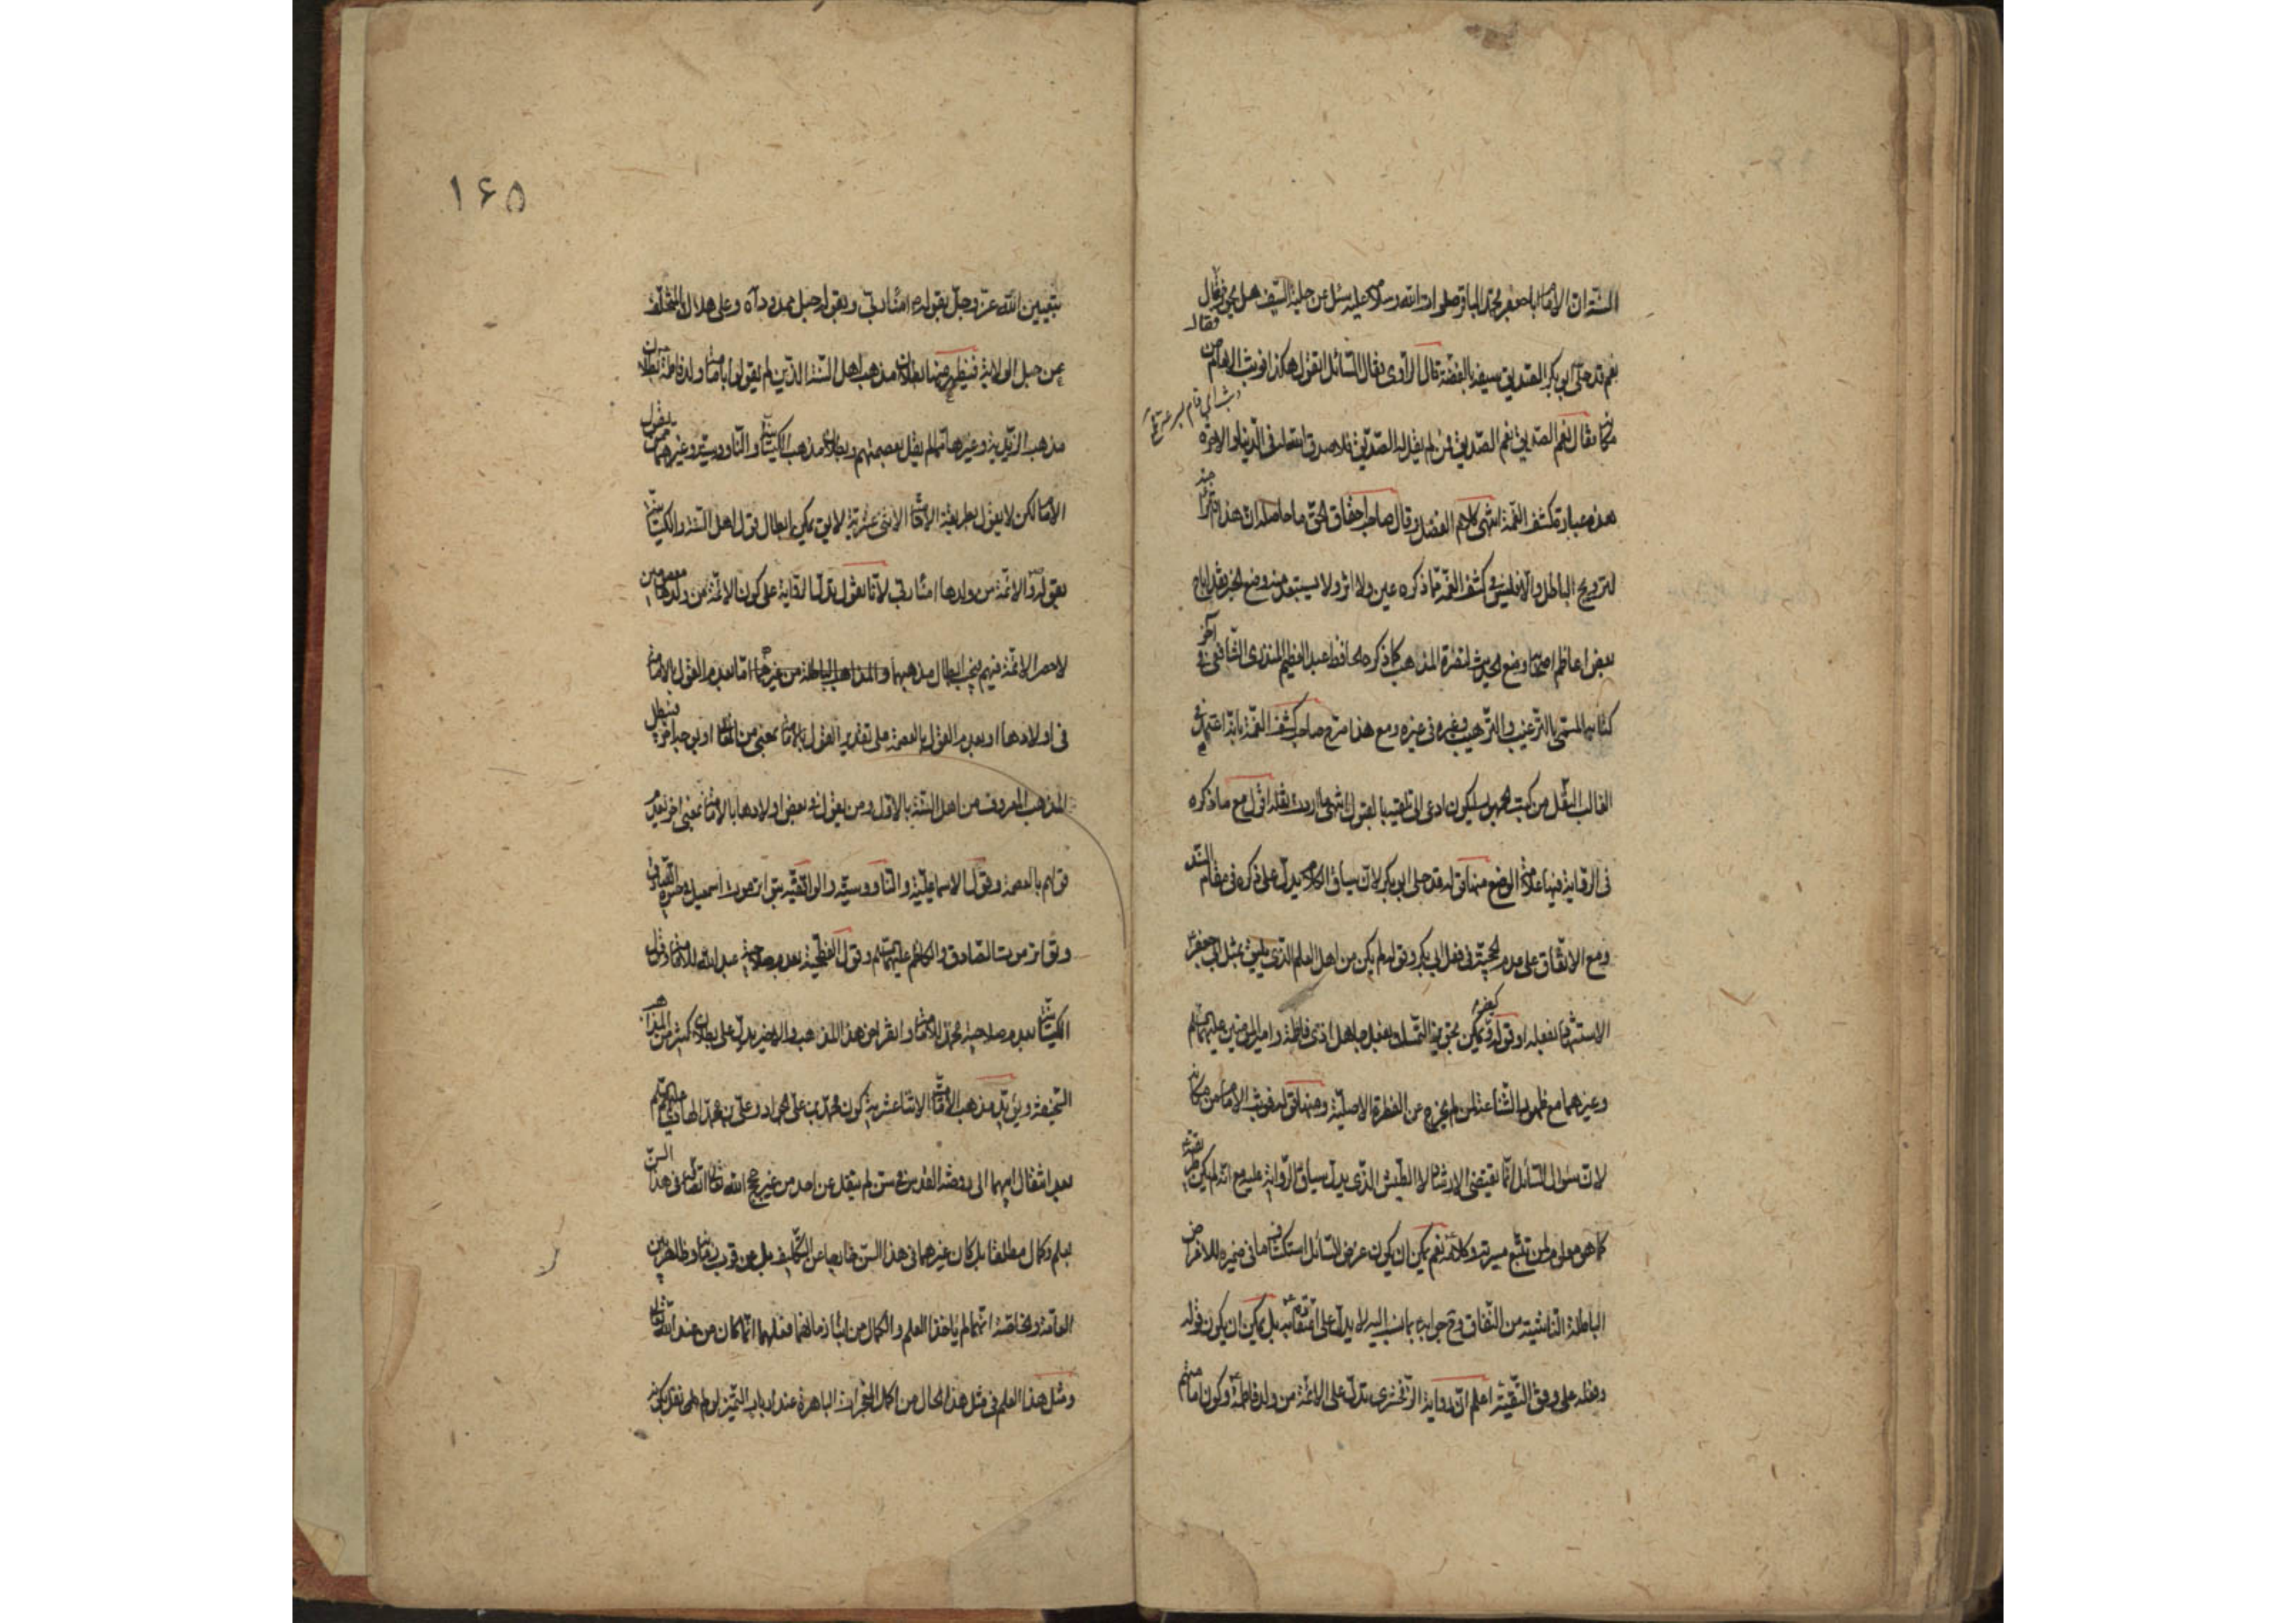 السنة ان الامام ابا جعفر محمد الباقر صلوات الله وسلامه عليه سئل عن حلية السيف هل يجوز فقال
فقال
نعم قد حلى ابو بكر الصديق سيفه بالفضة قال الراوى فقال السائل اتقول هكذا فوثب الامام من
وثب اى قام بسرعة
مكانه فقال نعم الصديق نعم الصديق فمن لم يقل له الصديق فلا صدق الله فى الدنيا والاخرة
هذه عبارة كشف الغمة انتهى كلام الفضل وقال صاحب احقاق الحق ما حاصله ان هذا
لترويج الباطل والا فليس فى كشف الغمة مما ذكره عين ولا اثر ولا يستبعد منه وضع الخبر فقد اباح
بعض اعاظم اصحابنا وضع الحديث لنصرة المذهب كما ذكره الحافظ عبد العظيم المنذرى الشافعى فى آخر
كتابه المسمى بالترغيب والترهيب وغيره فى غيره ومع هذا صرح صاحب كشف الغمة بانه اعتمد فى
الغالب النقل من كتب الجمهور ليكون ادعى الى تلقيه بالقبول انتهى ما اردت نقله اقول مع ما ذكره
فى الرواية فيها علامة الوضع منها قوله قد حلى ابو بكر لان سياق الكلام يدل على ذكره فى مقام السند
ومع الاتفاق على عدم الحجية فى فعل ابى بكر وقوله لم يكن من اهل العلم الذى يليق بمثل ابى جعفر
الاستشهاد بفعله او قوله فكيف يمكن تجويز التمسك بفعل جاهل اذى فاطمة وامير المؤمنين عليهما السلم
وغيرهما مع ظهور الشناعة لمن لم يخرج عن الفطرة الاصلية ومنها قوله فوثب الامام من مكانه
لان سؤال السائل انما يقتضى الارشاد لا الطيش الذى يدل سياق الرواية عليه مع انه لم يكن طريقته
كما هو معلوم لمن تتبع سيرته وكلامه نعم يمكن ان يكون غرض السائل استكشاف ما فى ضميره للاغراض
الباطلة الناشية من النفاق وح جوابه بما نسب اليه لا يدل على اعتقاده بل يمكن ان يكون قوله
وفعله على وفق التقية اعلم ان رواية الزمخشرى تدل على الائمة من ولد فاطمة وكون امامتهم
۱۶۵
بتعيين الله عز وجل بقوله امناء ربى وبقوله حبل ممدود آه وعلى هلاك المتخلف
عن حبل الولاية فيظهر منها بطلان مذهب اهل السنة الذين لم يقولوا بامامة ولد فاطمة وبطلان
مذهب الزيدية وغيرها ممن لم يقل بعصمتهم وبطلان مذهب الكيسانية والناووسية وغيرهما ممن يقول
الامامة لكن لا يقول بطريقة الامامية الاثنى عشرية لا يق يمكن ابطال قول اهل السنة والكيسانية
بقوله والائمة من ولدها امناء ربى لانا نقول تدل الرواية على كون الائمة من ولدها معصومين
لا حصر الائمة فيهم يجب ابطال مذهبهما والمذاهب الباطلة من غيرهما اما بعدم القول بالامامة
فى اولادها او بعدم القول بالعصمة على تقدير القول بالامامة بمعنى من المعانى او بوجه اخر فيبطل
المذهب المعروف من اهل السنة بالاول ومن يقول فى بعض اولادها بالامامة بمعنى اخر بعدم
قولهم بالعصمة وقول الاسماعيلية والناووسية والواقفية بتواتر موت اسمعيل
وتواتر موت الصادق والكاظم عليهما السلم وقول الفطحية بعدم صلاحية عبد الله للامامة وقول
الكيسانية بعدم صلاحية محمد للامامة وانقراض هذا المذهب والاخير يدل على بطلان كثير من المذاهب
السخيفة ويؤيد مذهب الامامية الاثنا عشرية كون محمد بن على الجواد وعلى بن محمد الهادى عليهم السلم
بعد انتقال ابيهما الى روضة القدس فى سن لم ينقل عن احد من غير حجج الله تعالى اتصافه فى هذا السن
بعلم وكمال مطلقا بل كان غيرهما فى هذا السن خارجا عن التكليف بل عن قرب زمانه وظاهر بين
العامة والخاصة انهما لم ياخذا العلم والكمال من استاذ زمانهما فعلمهما انما كان من عند الله تعالى
ومثل هذا العلم فى مثل هذا الحال من اكمل المعجزات الباهرة عند ارباب التميز